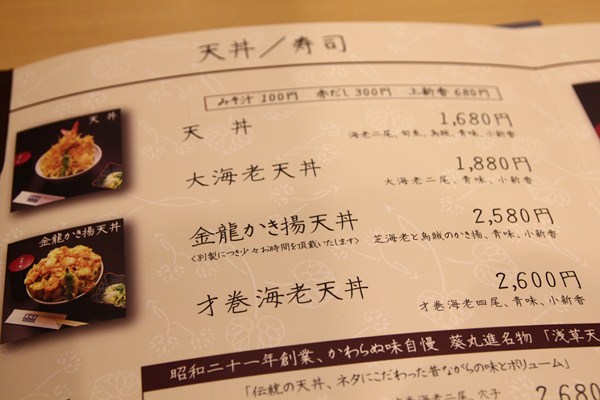 天丼／寿司
みそ汁 100円 赤だし 300円 上新香 680円
天丼
天丼 1,680円
海老二尾、旬魚、烏賊、青味、小新香
大海老天丼 1,880円
大海老二尾、青味、小新香
金龍かき揚天丼
金龍かき揚天丼 2,580円
＜別製につき少々お時間を頂戴いたします＞
芝海老と烏賊のかき揚、青味、小新香
才巻海老天丼 2,600円
才巻海老四尾、青味、小新香
昭和二十一年創業、かわらぬ味自慢 葵丸進名物 「浅草天
「伝統の天丼、ネタにこだわった昔ながらの味とボリューム」
2,680
大海老二尾、穴子